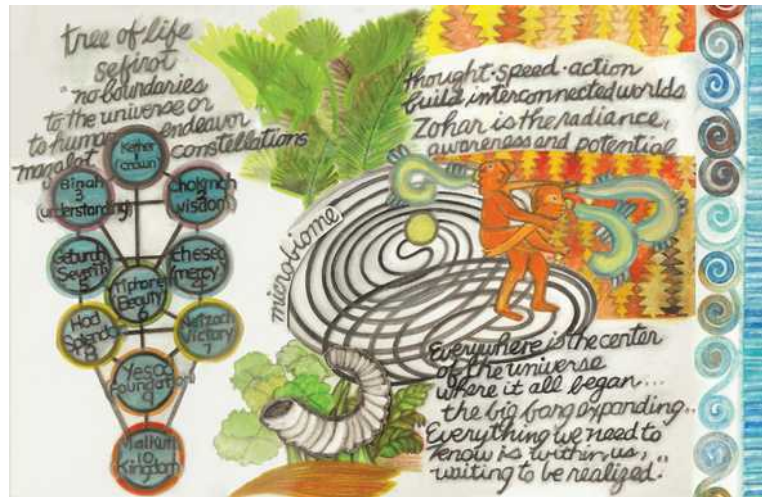 tree of life
sefirot
"no boundaries
to the universe or
to human endeavor
mazalot constellations
Kether
1
(crown)
Binah
3
(understanding)
Chokmah
2
wisdom
Geburah
Severity
5
Chesed
(mercy)
4
Tiphareth
Beauty
6
Hod
Splendor
8
Netzach
Victory
7
Yesod
(Foundation)
9
Malkuth
10
Kingdom
microbiome
thought·speed·action
build interconnected worlds
Zohar is the radiance,
awareness and potential
Everywhere is the center
of the universe
where it all began...
the big bang expanding..
Everything we need to
know is within us, ..
waiting to be realized.